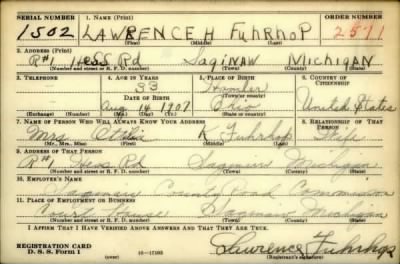 SERIAL NUMBER 1. NAME (Print) ORDER NUMBER
1502 LAWRENCE H FUHRHOP 2571
(First) (Middle) (Last)
2. ADDRESS (Print)
R#1 HESS Rd SAGINAW MICHIGAN
(Number and street or R. F. D. number) (Town) (County) (State)
3. TELEPHONE 4. AGE IN YEARS 5. PLACE OF BIRTH 6. COUNTRY OF CITIZENSHIP
33 Hamler
DATE OF BIRTH (Town or county)
Aug 14 1907 Ohio United States
(Exchange) (Number) (Mo.) (Day) (Yr.) (State or country)
7. NAME OF PERSON WHO WILL ALWAYS KNOW YOUR ADDRESS 8. RELATIONSHIP OF THAT PERSON
Mrs K Fuhrhop Wife
(Mr., Mrs., Miss) (First) (Middle) (Last)
9. ADDRESS OF THAT PERSON
R#1 Hess Rd Saginaw Michigan
(Number and street or R. F. D. number) (Town) (County) (State)
10. EMPLOYER'S NAME
Saginaw County Road Commission
11. PLACE OF EMPLOYMENT OR BUSINESS
Court House Saginaw Michigan
(Number and street or R. F. D. number) (Town) (County) (State)
I AFFIRM THAT I HAVE VERIFIED ABOVE ANSWERS AND THAT THEY ARE TRUE.
REGISTRATION CARD
D. S. S. Form 1 (over) Lawrence Fuhrhop